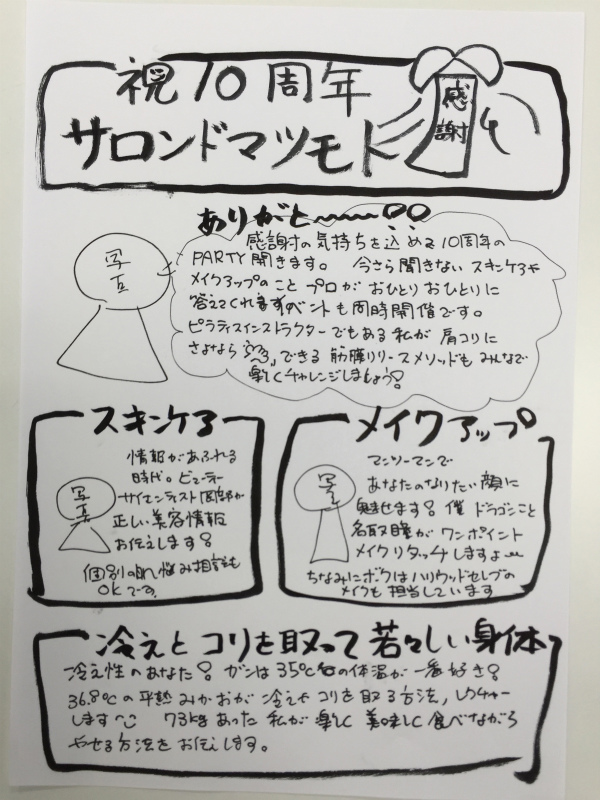 祝10周年
サロンドマツモト
感謝
ありがと〜〜!!
写真
感謝の気持ちを込める10周年の
PARTY開きます。 今さら聞きない スキンケアや
メイクアップのこと プロが おひとりおひとりに
答えてくれます イベントも同時開催です。
ピラティスインストラクターでもある私が 肩コリに
さよなら できる 筋膜リリースメソッドも みんなで
楽しくチャレンジしましょう!
スキンケア
写真
情報があふれる
時代。ビューティー
サイエンティスト 岡部が
正しい美容情報
お伝えします!
個別のお悩み相談も
OKです。
メイクアップ
写真
マンツーマンで
あなたのなりたい顔に
魅せます! 僕 ドラゴンこと
名取 が ワンポイント
メイクリタッチしますよ〜
ちなみにボクはハリウッドセレブの
メイクも担当しています
冷えと コリを取って 若々しい身体
冷え性のあなた! ガンは35℃ の体温が一番好き!
36.8℃の平熱 みかおが 冷えや コリを取る方法、レクチャー
します 73kgあった 私が 楽しく 美味しく 食べながら
やせる方法を お伝えします。